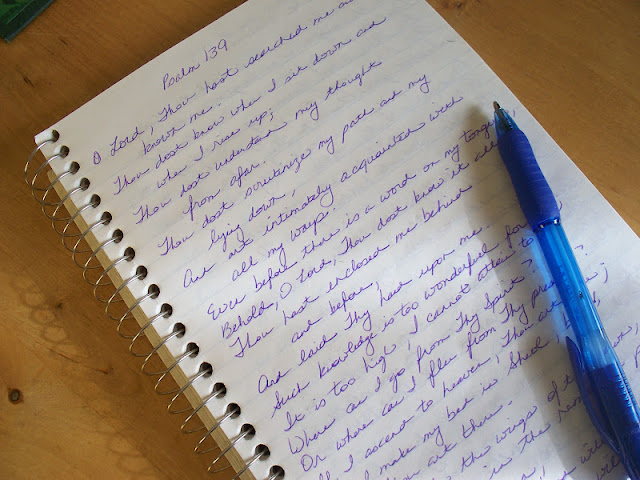 Psalm 139
O Lord, Thou hast searched me and
known me.
Thou dost know when I sit down and
when I rise up;
Thou dost understand my thought
from afar.
Thou dost scrutinize my path and my
lying down,
And art intimately acquainted with
all my ways.
Even before there is a word on my tongue,
Behold, O Lord, Thou dost know it all.
Thou hast enclosed me behind
and before,
And laid Thy hand upon me.
Such knowledge is too wonderful for
It is too high, I cannot attain to
Where can I go from Thy Spirit?
Or where can I flee from Thy
If I ascend to heaven, Thou art
I make my bed in Sheol,
Thou art there.
the wings of
in the